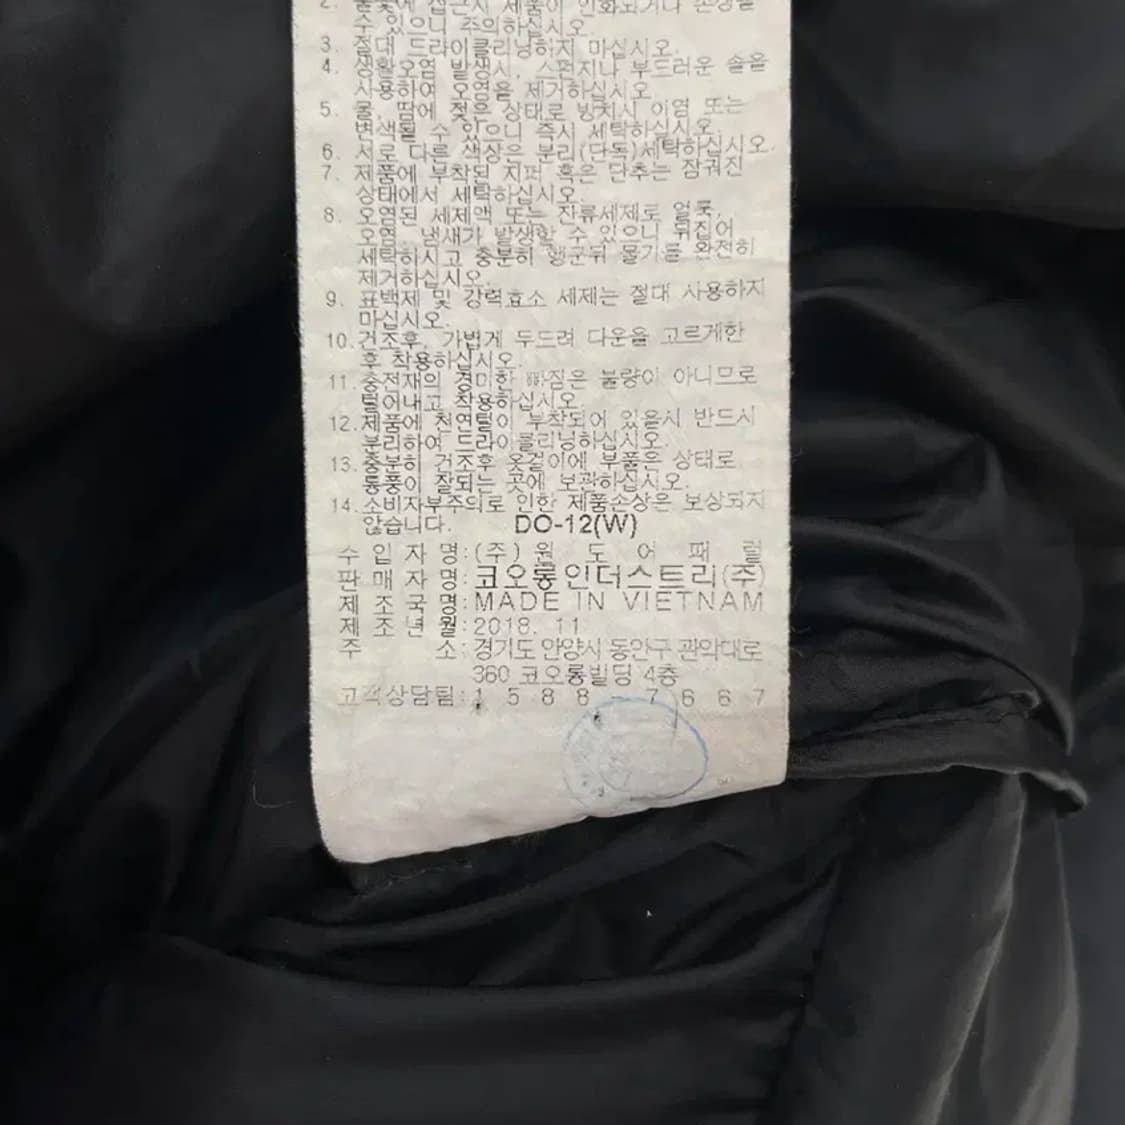 2. 불꽃에 접근시 제품이 인화되거나 손상될
수 있으니 주의하십시오.
3. 절대 드라이클리닝하지 마십시오.
4. 생활오염 발생시, 스펀지나 부드러운 솔을
사용하여 오염을 제거하십시오
5. 물, 땀에 젖은 상태로 방치시 이염 또는
변색될 수 있으니 즉시 세탁하십시오.
6. 서로 다른 색상은 분리(단독)세탁하십시오.
7. 제품에 부착된 지퍼 혹은 단추는 잠궈진
상태에서 세탁하십시오.
8. 오염된 세제액 또는 잔류세제로 얼룩,
오염, 냄새가 발생할 수 있으니 뒤집어
세탁하시고 충분히 헹군뒤 물기를 완전히
제거하십시오.
9. 표백제 및 강력효소 세제는 절대 사용하지
마십시오.
10. 건조후, 가볍게 두드려 다운을 고르게한
후 착용하십시오.
11. 충전재의 경미한 빠짐은 불량이 아니므로
털어내고 착용하십시오.
12. 제품에 천연털이 부착되어 있을시 반드시
분리하여 드라이클리닝하십시오.
13. 충분히 건조후 옷걸이에 부풀은 상태로
통풍이 잘되는 곳에 보관하십시오.
14. 소비자부주의로 인한 제품손상은 보상되지
않습니다. DO-12(W)
수입자명:(주)원도어패럴
판매자명:코오롱인더스트리(주)
제조국명:MADE IN VIETNAM
제조년월:2018. 11
주 소:경기도 안양시 동안구 관악대로
360 코오롱빌딩 4층
고객상담팀:1588-7667